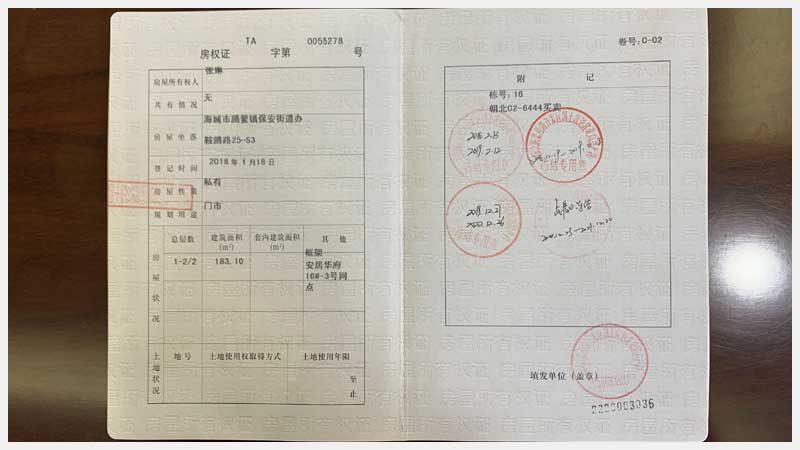 TA 0055278
房权证 字第 号
房屋所有权人 张琳
共有情况 无
房屋坐落 海城市腾鳌镇保安街道办
鞍腾路25-S3
登记时间 2018年1月18日
房屋性质 私有
规划用途 门市
房屋状况
总层数 建筑面积(m²) 套内建筑面积(m²) 其他
1-2/2 183.10 框架
安居华府
16#-3号网
点
土地状况
地号 土地使用权取得方式 土地使用年限
至
止
卷号:C-02
附记
栋号:16
朝北C2-6444买卖
2018.2.13
2019.2.12
2018.12.27
2020.12.26
填发单位(盖章)